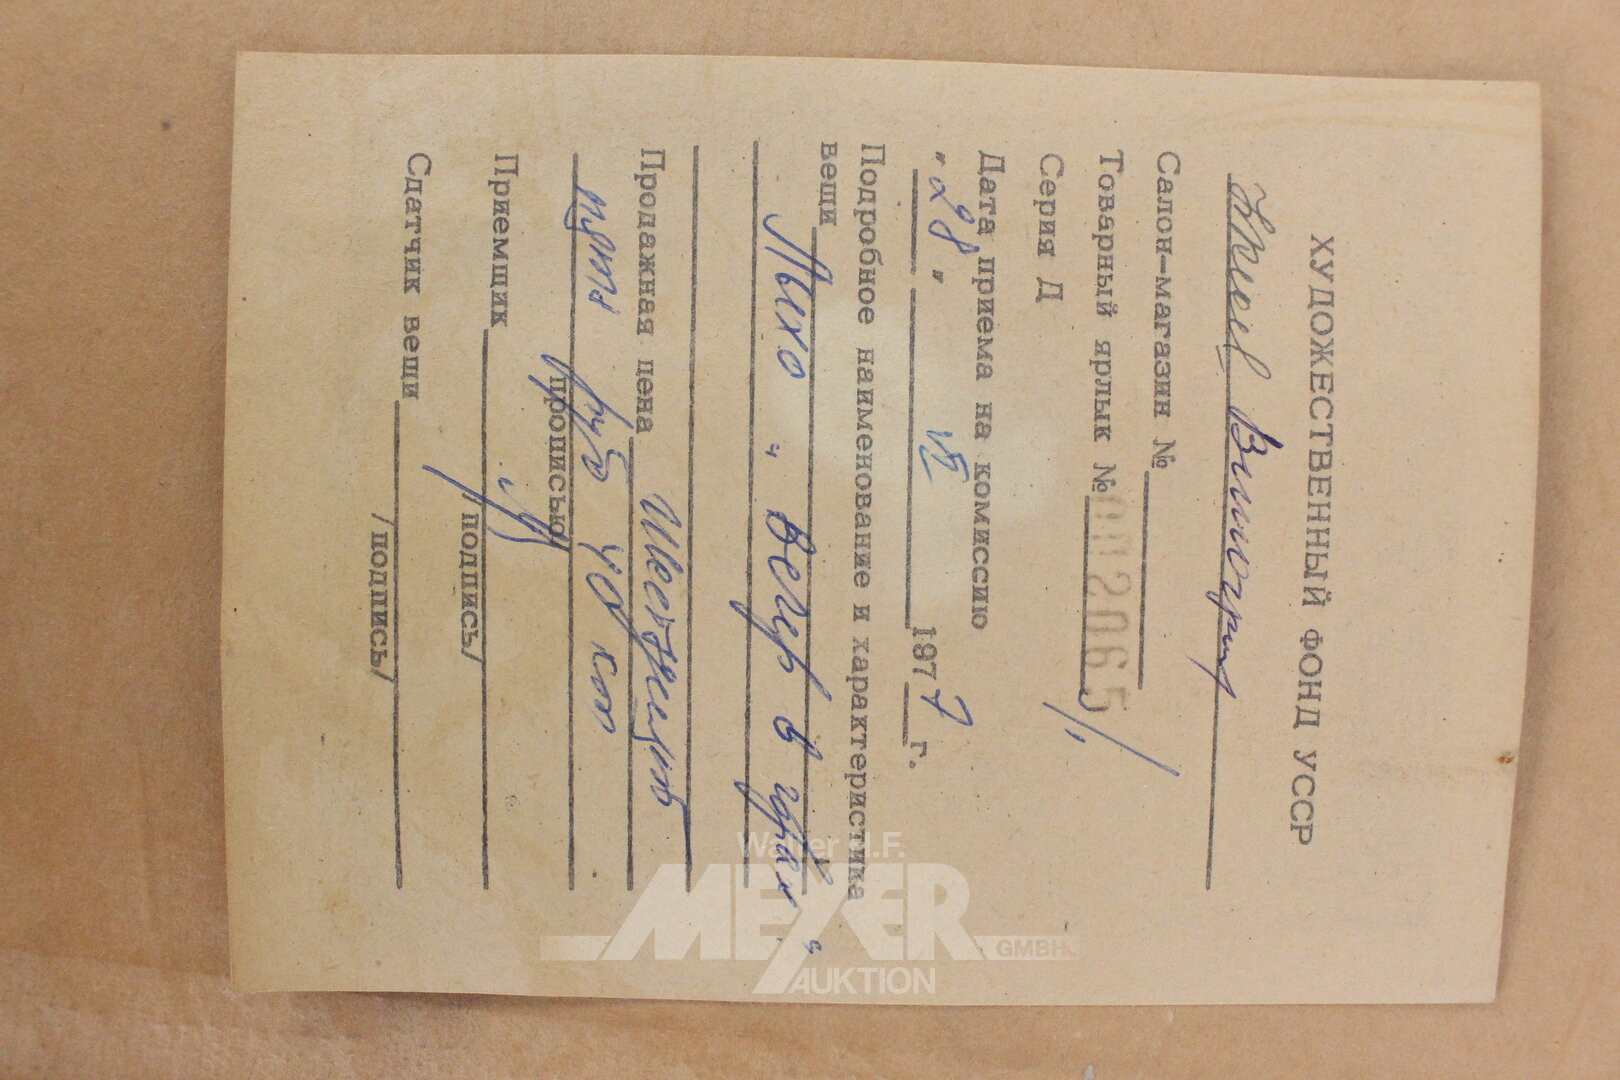 ХУДОЖЕСТВЕННЫЙ ФОНД УССР
Салон-магазин №
Товарный ярлык № 002065
Серия Д
Дата приема на комиссию
"28" VII 1977 г.
Подробное наименование и характеристика
вещи
"Вечер в горах"
Продажная цена Шестьдесят
руб 40 коп
прописью
Приемщик
/подпись/
Сдатчик вещи
/подпись/
Walter H.F.
MEYER
GMBH
AUKTION